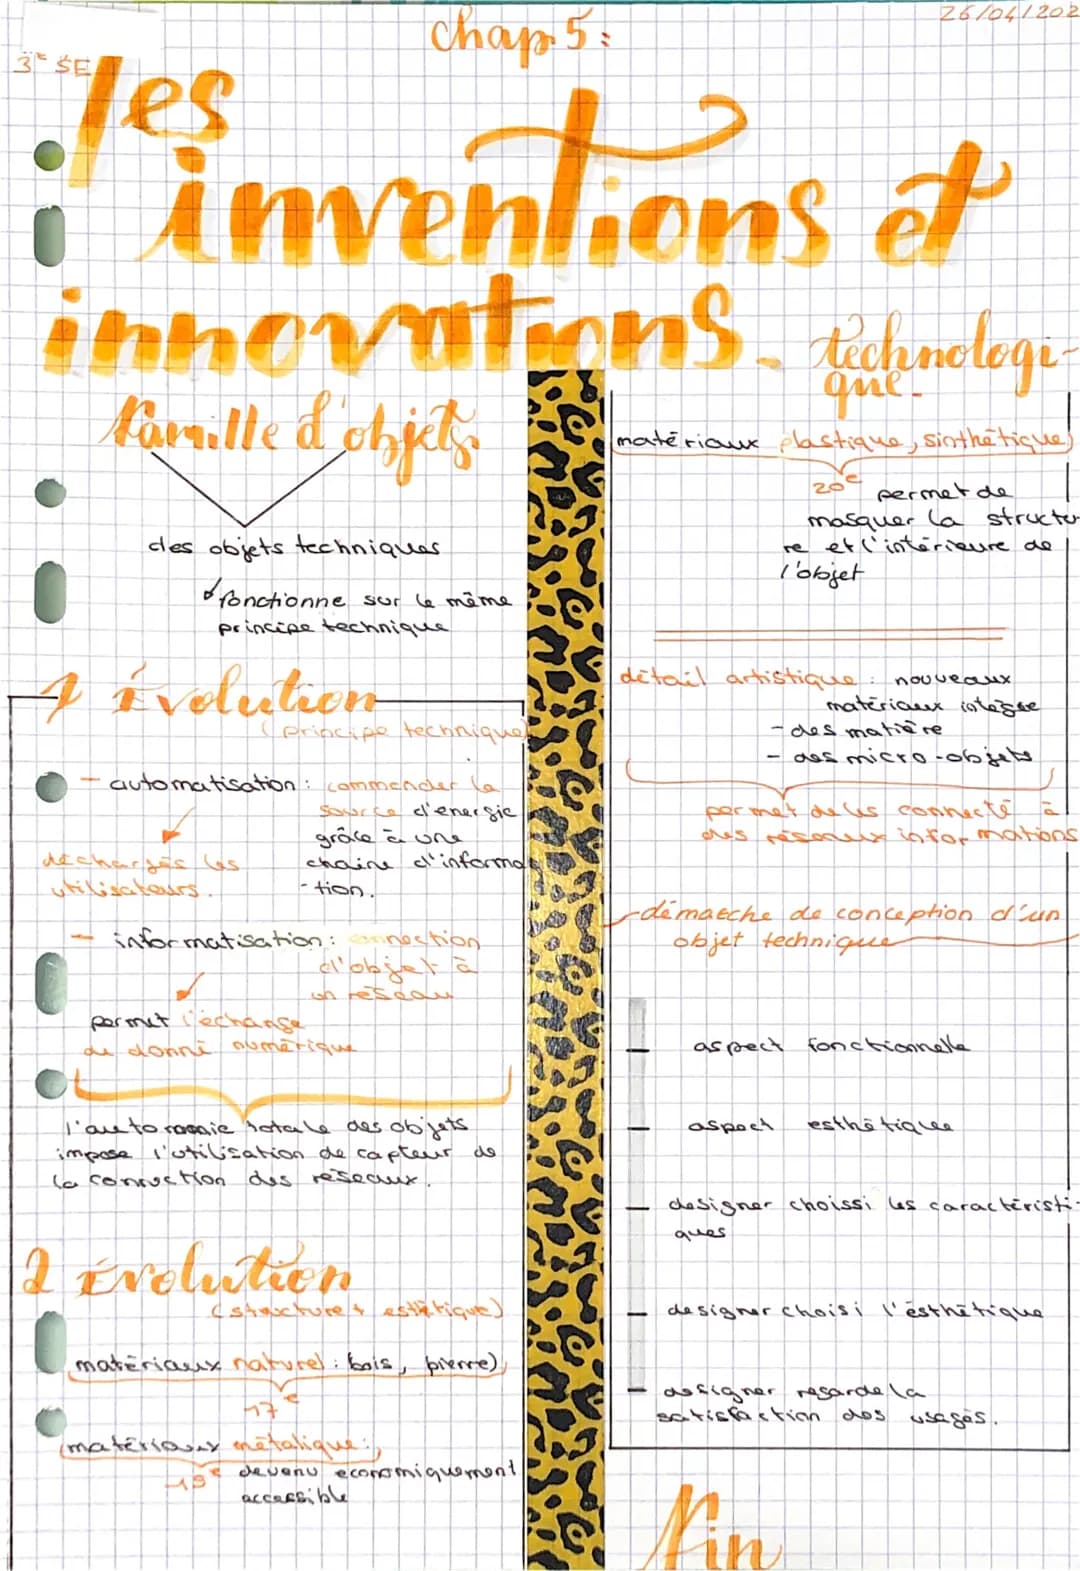 26/04/202
chap 5 :
3e SE
les
inventions et
innovations.
technologi-
que.
famille d'objets
des objets techniques
fonctionne sur le même
principe technique
1 Évolution
(principe technique)
- automatisation : commender la
source d'energie
grâce à une
chaine d'informa
-tion.
déchargés les
utilisateurs.
- informatisation : connection
d'objet à
un réseau
permet l'échange
de donné numérique
l'autonomie totale des objets
impose l'utilisation de capteur de
la connection des réseaux.
2 Évolution
(structure + esthétique)
matériaux naturel : bois, pierre)
17e
(matériaux métalique :
19e devenu economiquement
accessible
matériaux plastique, sinthétique)
20e
permet de
masquer la structu
re et l'intérieure de
l'objet
détail artistique : nouveaux
matériaux
- des matière
- des micro-objets
permet de les connecté à
des réseaux informations
démarche de conception d'un
objet technique
aspect fonctionnelle
aspect esthétique
designer choissi les caractéristi-
ques
designer choisi l'ésthétique
designer regarde la
satisfaction des usagés.
Fin